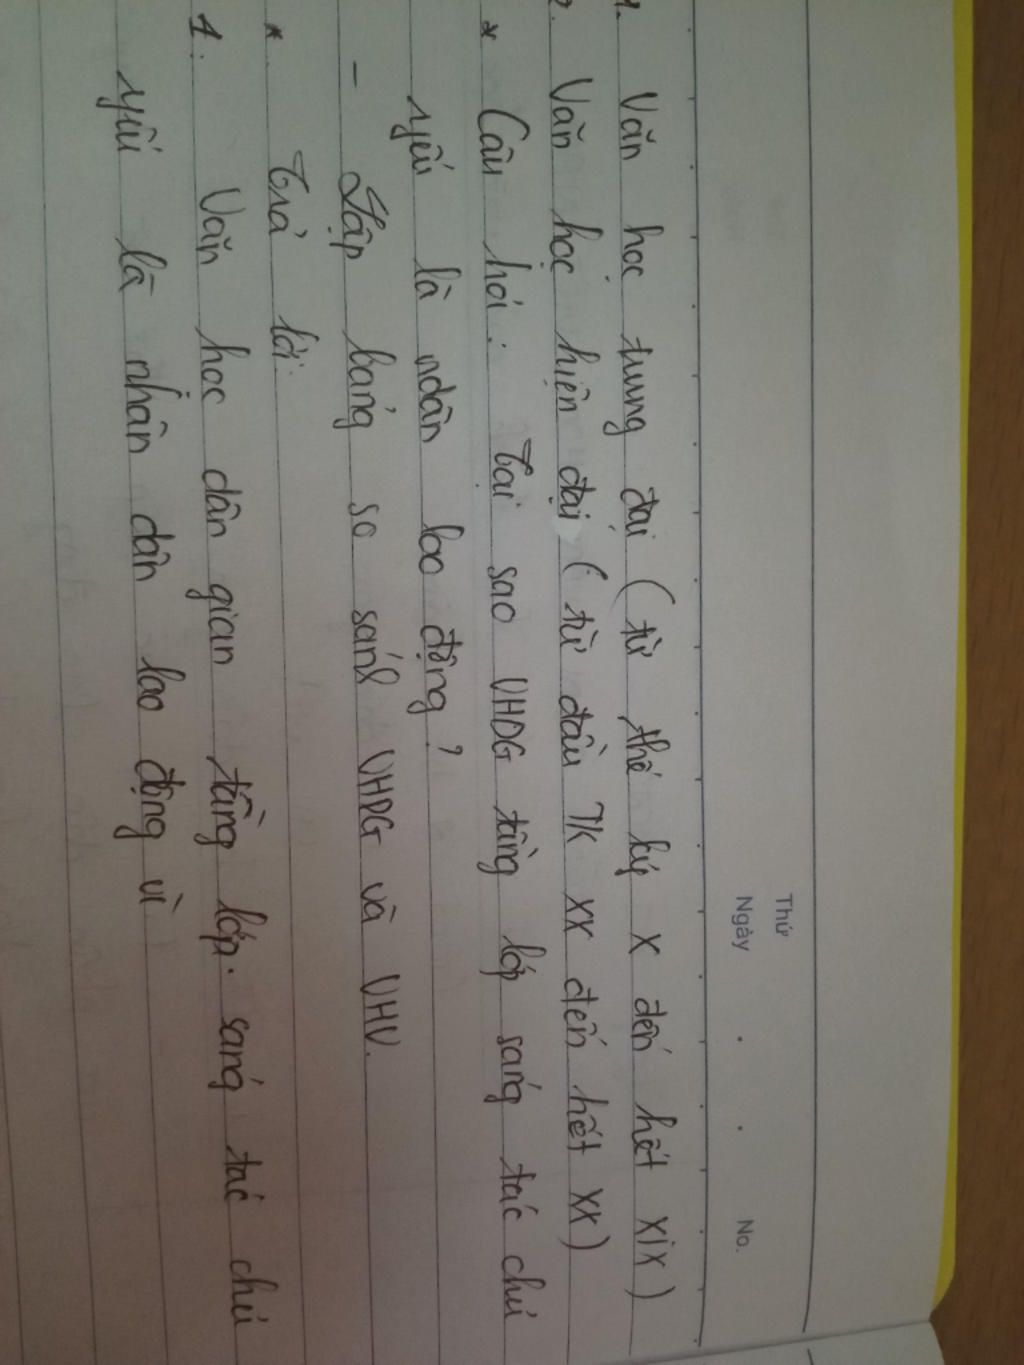 Thứ
Ngày . . No.
1. Văn học trung đại ( từ thế kỷ X đến hết XIX )
2. Văn học hiện đại ( từ đầu TK XX đến hết XX )
* Câu hỏi : Tại sao VHDG tầng lớp sáng tác chủ
yếu là ndân lao động ?
- Lập bảng so sánh VHDG và VHV.
* Trả lời:
1. Văn học dân gian tầng lớp sáng tác chủ
yếu là nhân dân lao động vì